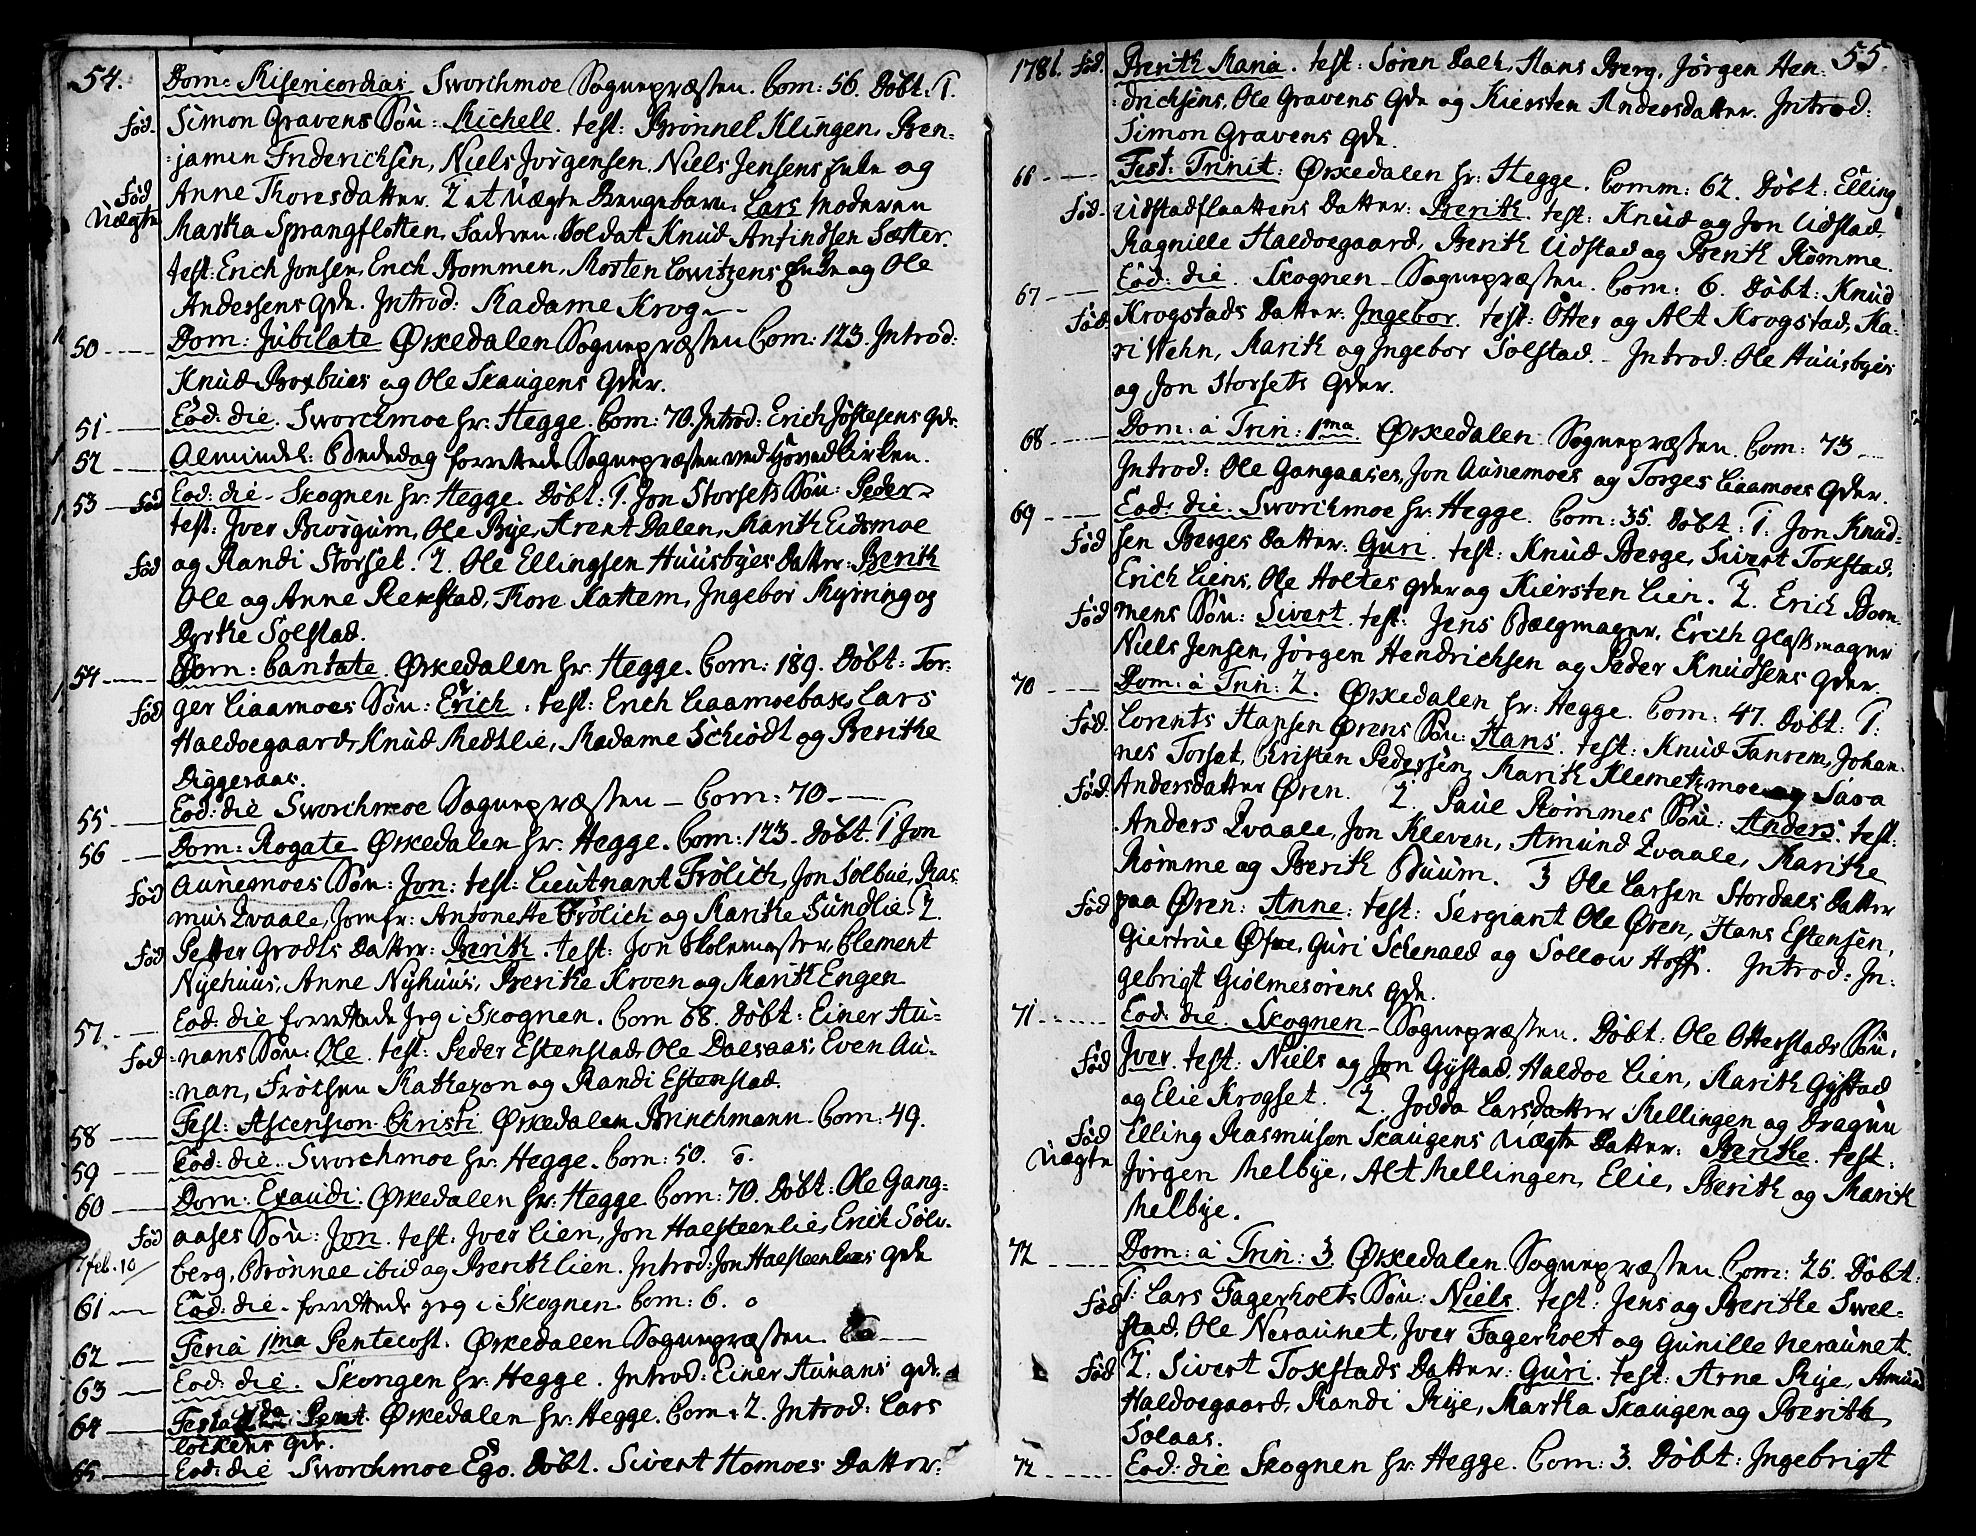 54. Dom: Misericordias Sworchmoe Sognepræsten. Com: 56. Døbt: 1.
Fød. Simon Gravens Søn: Michell. test: Brønnel Klingen, Ben-
jamen Friderichsen, Niels Jørgensen, Niels Jensens Enke og
Fød Uægte Anne Thoresdatter. 2 et Uægte Drengebarn. Lars Moderen
Marita Sprangflotten, Faderen Soldat Knud Anfindsen Sætter.
test: Erich Jonsen, Erich Bommen, Morten Lowitzens Enke og Ole
Andersens Qde. Introd: Madame Krog
50 Dom: Jubilate Ørkedalen Sognepræsten Com: 123. Introd:
Knud Boxbues og Ole Skaugens Qder.
51 Eod: die. Sworchmoe hr: Hegge. Com: 70. Introd: Erich Jostesens Qde.
52 Almindel: Bededag forrettede Sognepræsten ved Hovedkirken.
53 Fød Eod: die. Skognen hr: Hegge. Døbt: 1. Jon Storsets Søn: Peder
test: Iver Burgum, Ole Bye, Arent Dalen, Marith Eidsmoe
Fød og Randi Storset. 2. Ole Ellingsen Huusbyes Datter: Berith
Ole og Anne Rekstad, Thore Kattem, Ingebor Myrning og
Dyrke Solstad.
54 Dom: Cantate. Ørkedalen hr: Hegge. Com: 189. Døbt: Tor-
Fød ger Liaamoes Søn: Erich. test: Erich Liaamoebak, Lars
Haldoegaard, Knud Medtlie, Madame Schiødt og Berithe
Diggeraas.
55 Eod: die Sworchmoe Sognepræsten Com: 70
56 Dom: Rogate Ørkedalen hr: Hegge. Com: 123. Døbt: 1 Jon
Fød Aunemoes Søn: Jon: test: Lieutnant Frølich, Jon Solbue, Ras
mus Qvaale, Jomfr: Antonette Frølich og Marithe Sundlie. 2.
Fød Petter Grodts Datter: Berith. test: Jon Skolemester, Clement
Nyehuus, Anne Nyhuus, Berithe Kroen og Marith Engen
57 Eod: die forrettede Jeg i Skognen. Com 68. Døbt: Einer Au-
Fød nans Søn: Ole. test: Peder Estenstad, Ole Dalsaas, Even Au-
nan, Frøthen Mathezon og Randi Estenstad.
58 Fest: Ascension Christi Ørkedalen Brinchmann. Com: 49.
59 Eod: die. Sworchmoe hr: Hegge. Com: 50. 0.
60 Dom: Exaudi. Ørkedalen hr: Hegge Com: 70. Døbt: Ole Gang-
Fød aases Søn: Jon. test: Iver Lien, Jon Halsteenlie, Erich Solv-
7 feb. 10/ berg, Brønnel ibid og Berith Lien. Introd: Jon Halsteenlies Qde
61 Eod: die. forrettede jeg i Skognen. Com: 6. 0
62 Feria 1ma Pentecost. Ørkedalen Sognepræsten.
63 Eod: die. Skongen hr: Hegge. Introd: Einer Aunans Qde.
64 Feria 2da Pent. Ørkedalen hr: Hegge. Com: 2. Introd: Lars
Løckens Qde.
65 Eod: die Sworchmoe Ego. Døbt. Sivert Homoes Datter:
1781. Fød. Berith Maria. test: Søren Dach, Hans Berg, Jørgen Hen- 55
drichsens, Ole Gravens Qde og Kiersten Andersdatter. Introd:
Simon Gravens Qde.
66 Fest: Trinit: Ørkedalen hr: Hegge. Comm: 62. Døbt: Elling
Fød. Udstadflaattens Datter: Berith. test: Knud og Jon Udstad,
Ragnille Haldoegaard, Berith Udstad og Berith Rømme.
67 Eod: die. Skognen Sognepræsten. Com: 6. Døbt: Knud
Fød. Krogstads Datter: Ingebor. test: Otter og Alt Krogstad, Ka-
ri Wehn, Marith og Ingebor Solstad. Introd: Ole Huusbyes
og Jon Storsets Qder.
68 Dom: à Trin: 1ma Ørkedalen Sognepræsten Com: 73
Introd: Ole Gangaases, Jon Aunemoes og Torges Liaamoes Qder.
69 Eod: die. Sworchmoe hr: Hegge. Com: 35. Døbt: 1. Jon Knud-
Fød sen Berges Datter: Guri. test: Knud Berge, Sivert Tokstad,
Erich Liens, Ole Holtes Qder og Kiersten Lien. 2. Erich Bom-
Fød mens Søn: Sivert. test: Jens Bælgmager, Erich Glassmager
Niels Jensen, Jørgen Hendrichsen og Peder Knudsens Qder.
70 Dom: à Trin: 2. Ørkedalen hr: Hegge. Com: 47. Døbt: 1:
Fød. Lorents Hansen Ørens Søn: Hans. test: Knud Fanrem, Johan-
nes Torset, Christen Pedersen, Marith Klemetsmoe og Sara
Fød. Andersdatter Øren. 2. Paul Rømmes Søn: Anders. test:
Anders Qvaale, Jon Kleven, Amund Qvaale, Marithe
Rømme og Berith Buum. 3 Ole Larsen Stordals Datter
Fød paa Øren: Anne: test: Sergiant Ole Øren, Hans Estensen,
Giertrue Øfre, Guri Schenald og Sollow Hoff. Introd: In-
gebrigt Giølmesørens Qde.
71 Eod: die. Skognen Sognepræsten. Døbt: Ole Otterstads Søn,
Fød Iver. test: Niels og Jon Gystad, Haldoe Lien, Marith Gystad
og Elie Krogset. 2. Jodda Larsdatter Mellingen og Dragun
Fød Uægte Elling Rasmuson Skaugens Uægte Datter: Berithe. test:
Jørgen Melbye, Alt Mellingen, Elie, Berith og Marith
Melbye.
72 Dom: à Trin: 3 Ørkedalen Sognepræsten Com: 25. Døbt:
Fød 1: Lars Fagerholts Søn: Niels. test: Jens og Berithe Swel-
stad, Ole Neraunet, Iver Fagerholt og Gunille Neraunet.
Fød 2. Sivert Tokstads Datter: Guri. test: Arne Rye, Amund
Haldoegaard, Randi Rye, Martha Skaugen og Berith
Solaas.
72 Eod: die Skognen hr: Hegge. Com: 3. Døbt: Ingebrigt